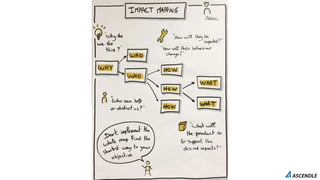 IMPACT MAPPING
Public
"Why do
we do
this?"
"How will they be
impacted?"
"How will their behaviour
change?"
WHO
HOW
WHY
WHO
HOW
WHAT
HOW
WHAT
"Who can help
or obstruct us?"
Don't implement the
whole map. Find the
shortest way to your
objective
"What will
the product do
to support the
desired impacts?"
ASCENDLE